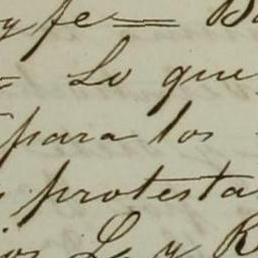 y fe= 
Lo que
para los
protesta
L y R